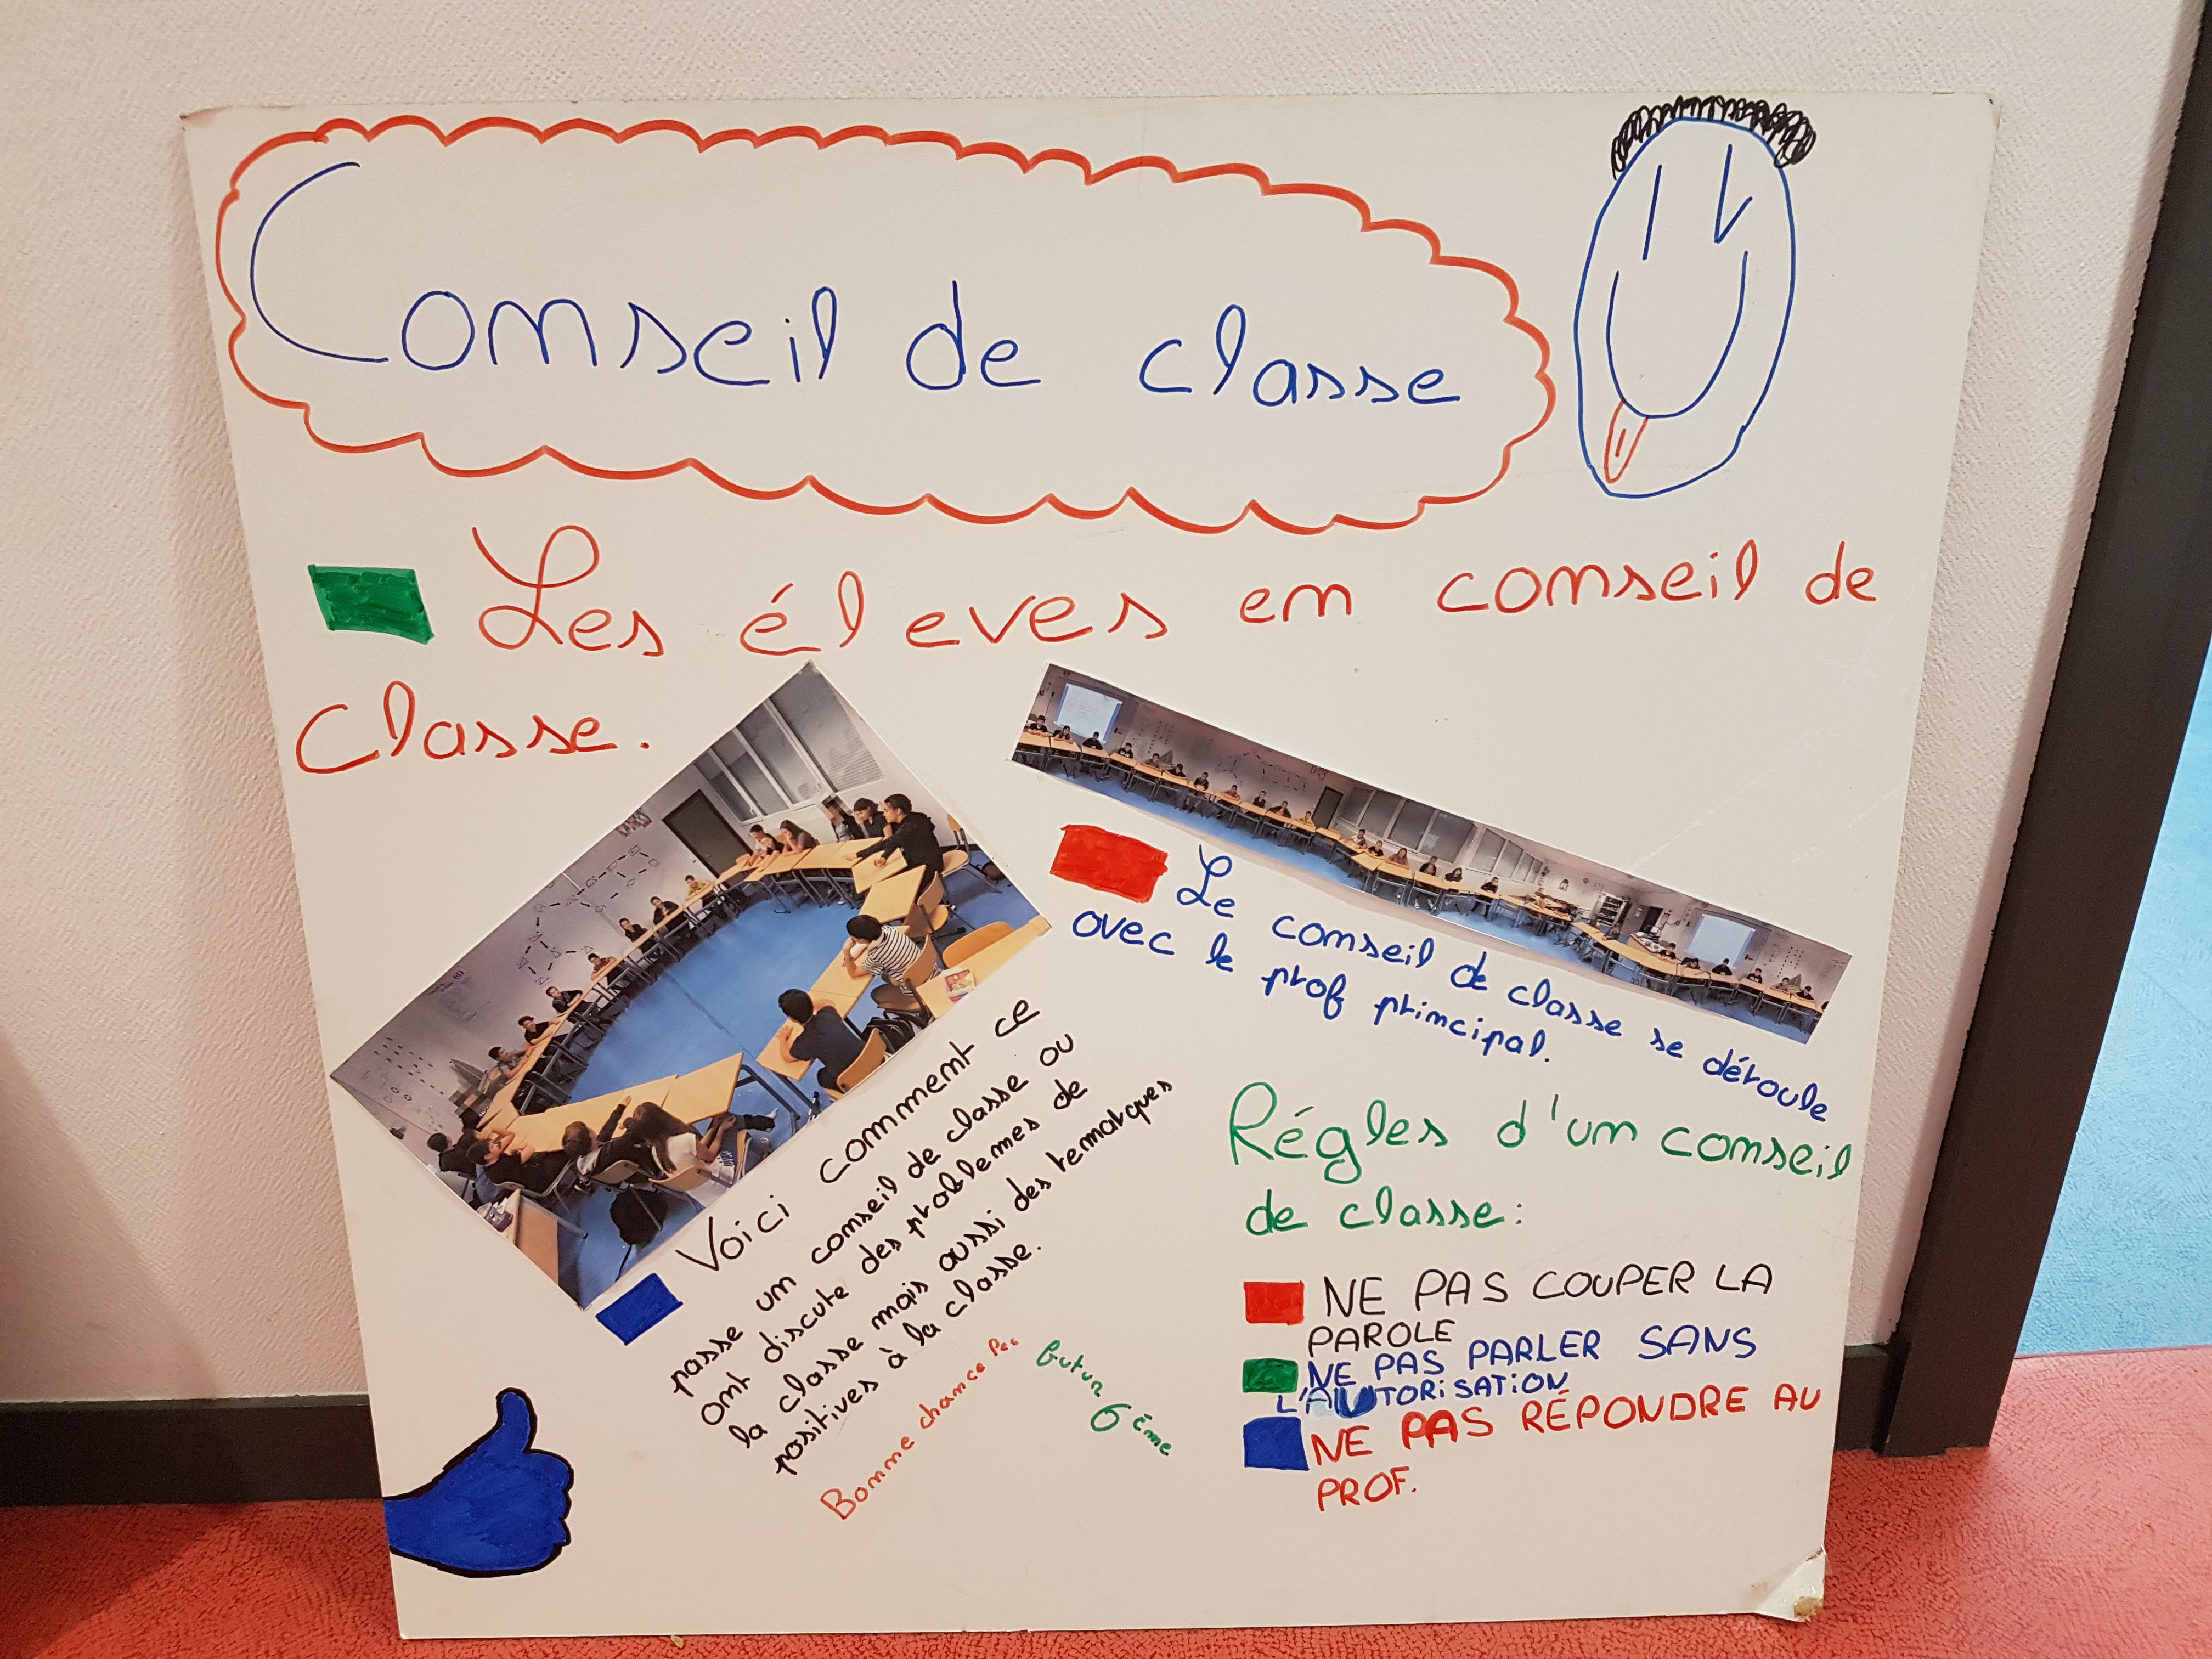 Conseil de classe
Les éleves en conseil de
Classe.
Le conseil de classe se déroule
avec le prof principal.
Voici comment ce
passe un conseil de classe ou
ont discute des problemes de
la classe mais aussi des remarques
positives à la classe.
Bonne chance les
futur 6ème
Régles d'un conseil
de classe:
NE PAS COUPER LA
PAROLE
NE PAS PARLER SANS
L'AUTORISATION
NE PAS RÉPONDRE AU
PROF.